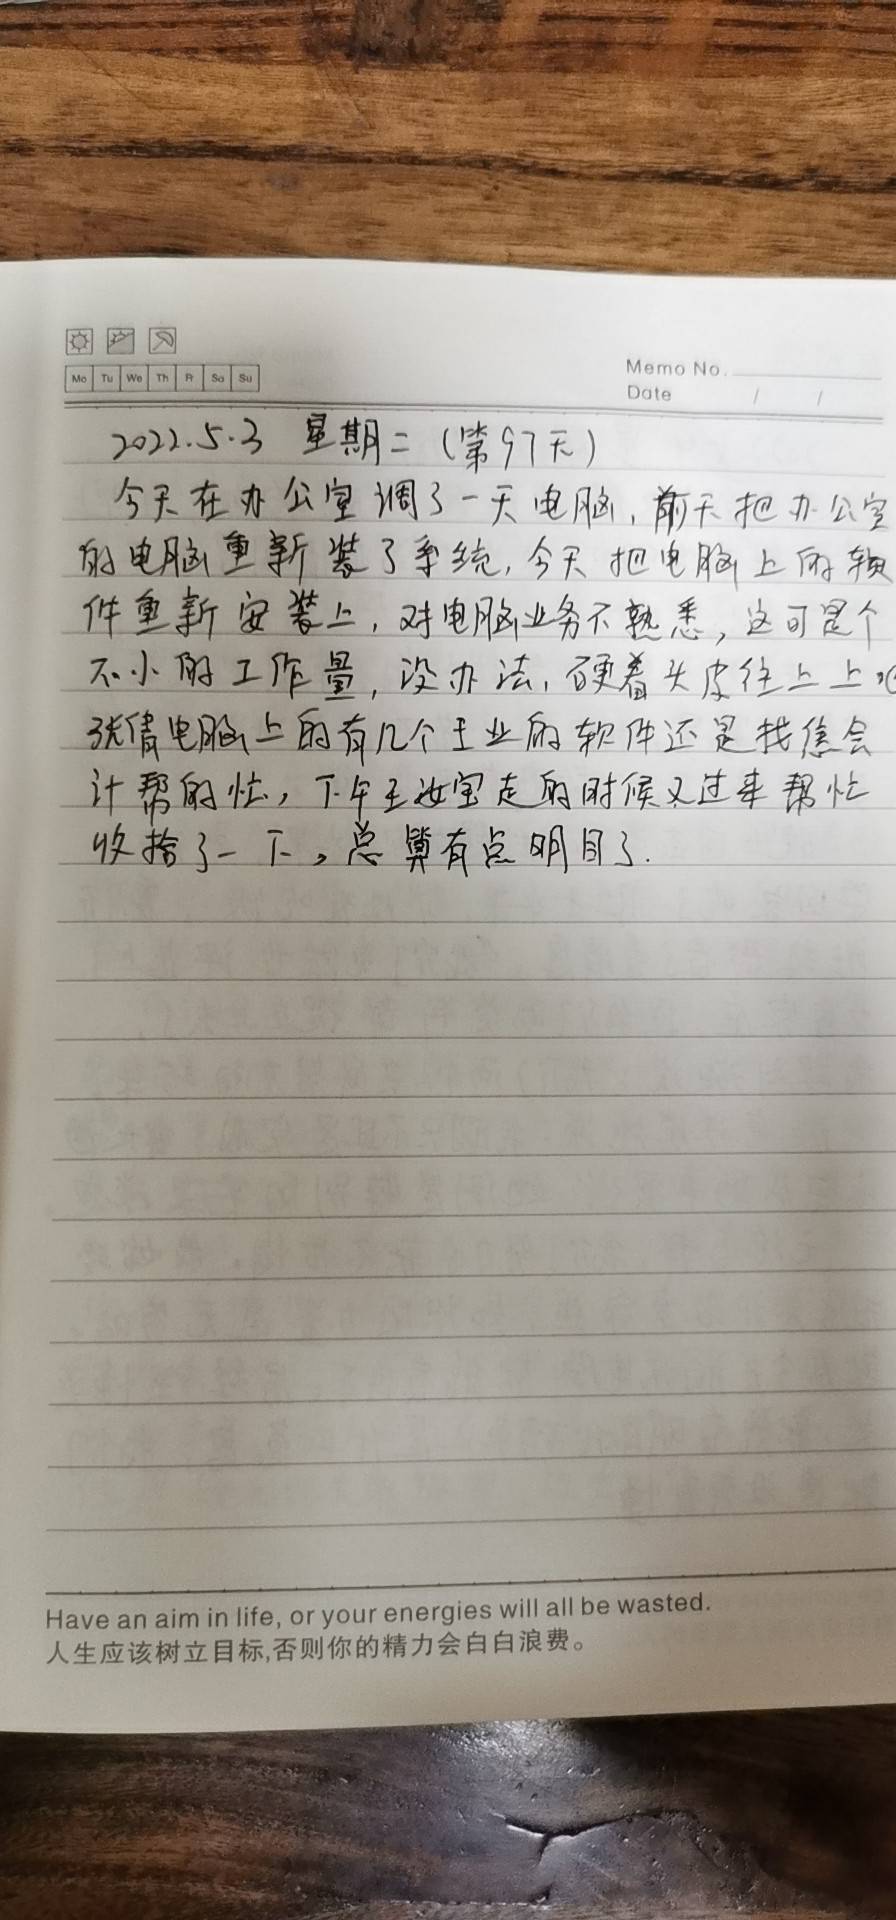 Mo Tu We Th Fr Sa Su
Memo No.
Date / /
2022.5.3 星期二（第97天）
今天在办公室调了一天电脑，前天把办公室
的电脑重新装了系统，今天把电脑上的软
件重新安装上，对电脑业务不熟悉，这可是个
不小的工作量，没办法，硬着头皮往上上吧
张倩电脑上的有几个专业的软件还是找信会
计帮的忙，下午王汝宝走的时候又过来帮忙
收拾了一下，总算有点明目了.
Have an aim in life, or your energies will all be wasted.
人生应该树立目标,否则你的精力会白白浪费。